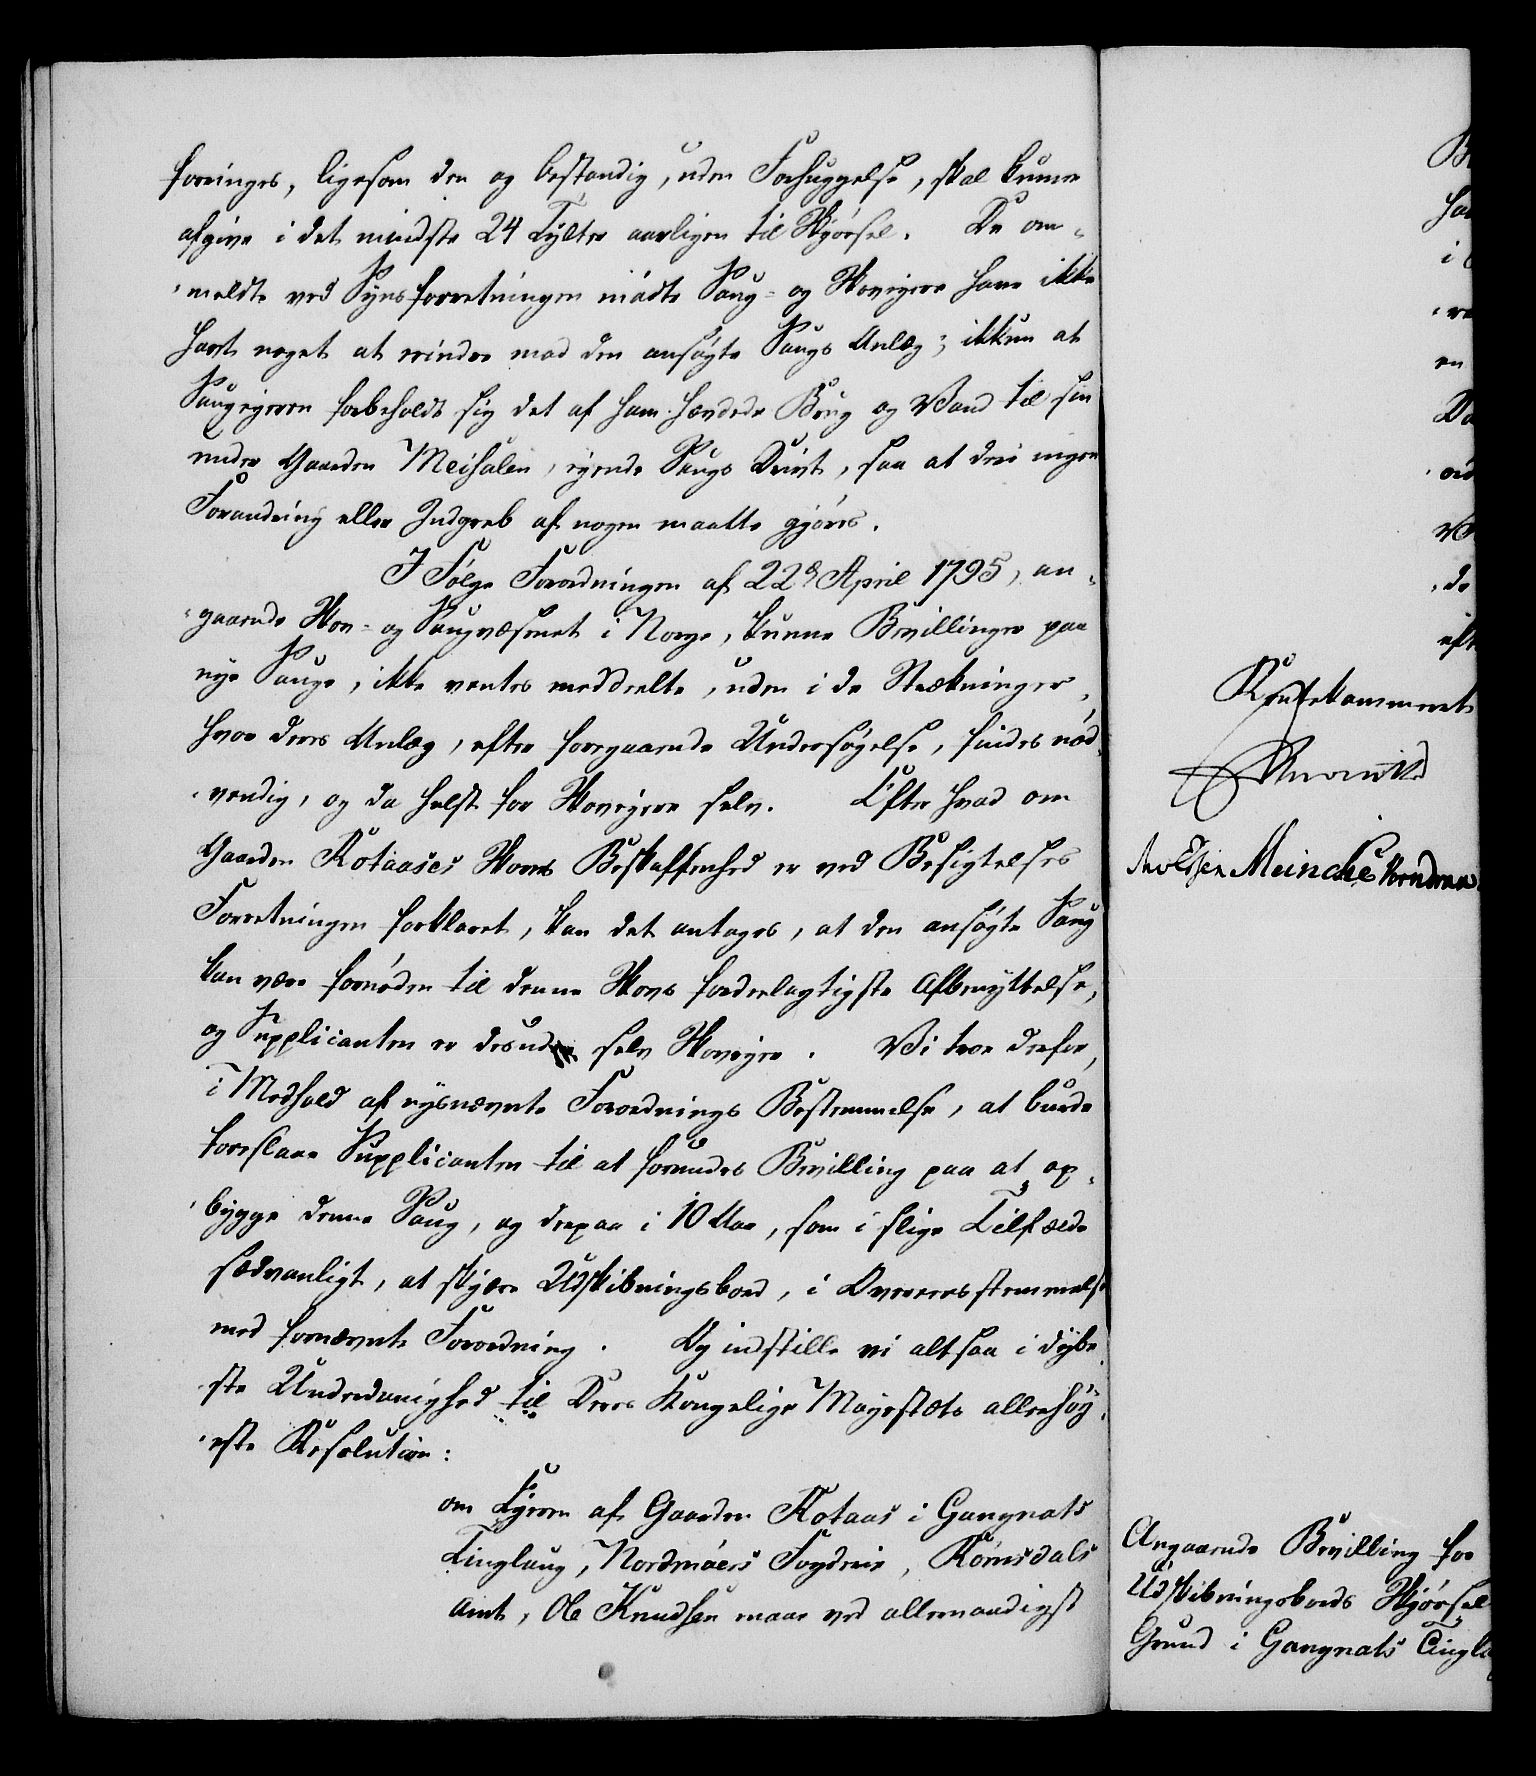 forringes, ligesom den og bestandig, uden Forhuggelse, skal kunne
afgive i det mindste 24 Tylter aarligen til Skjørsel. De om-
meldte ved Synsforretningen mødte Saug- og Skoveyere have ikke
havt noget at erindre mod den ansøgte Saugs Anlæg; ikkun at
Saugeyeren forbeholdt sig det af ham hævdede Brug og Vand til sin
under Gaarden Meisalen, eyende Saugs Drivt, saa at deri ingen
Forandring eller Indgreb af nogen maatte gjøres.
I Følge Forordningen af 22de April 1795, an-
gaaende Skov- og Saugvæsenet i Norge, kunne Bevillinger paa
nye Sauge, ikke ventes meddeelte, uden i de Strækninger,
hvor deres Anlæg, efter foregaaende Undersøgelse, findes nød-
vendig, og da helst for Skoveyere selv. Efter hvad om
Gaarden Rotaases Skovs Beskaffenhed er ved Besigtelses
Forretningen forklaret, kan det antages, at den ansøgte Saug
kan være fornøden til denne Skovs fordeelagtigste Afbenyttelse,
og Supplicanten er desuden selv Skoveyer. Vi troe derfor,
i Medhold af nysnævnte Forordnings Bestemmelse, at burde
foreslaae Supplicanten til at forundes Bevilling paa at op-
bygge denne Saug, og derpaa i 10 Aar, som i slige Tilfælde
sædvanligt, at skjære Udskibningsbord, i Overeensstemmelse
med fornævnte Forordning. Og indstille vi altsaa i dybe-
ste Underdanighed til Deres Kongelige Majestæts allerhøy-
este Resolution:
om Eyeren af Gaarden Rotaas i Gangnats
Tinglaug, Nordmøers Fogderie, Romsdals
Amt, Ole Knudsen maae ved allernaadigst
Rentekammeret
Meinche
Angaaende Bevilling for
Udskibningsbords Skjørsel
Grund i Gangnats Tingla